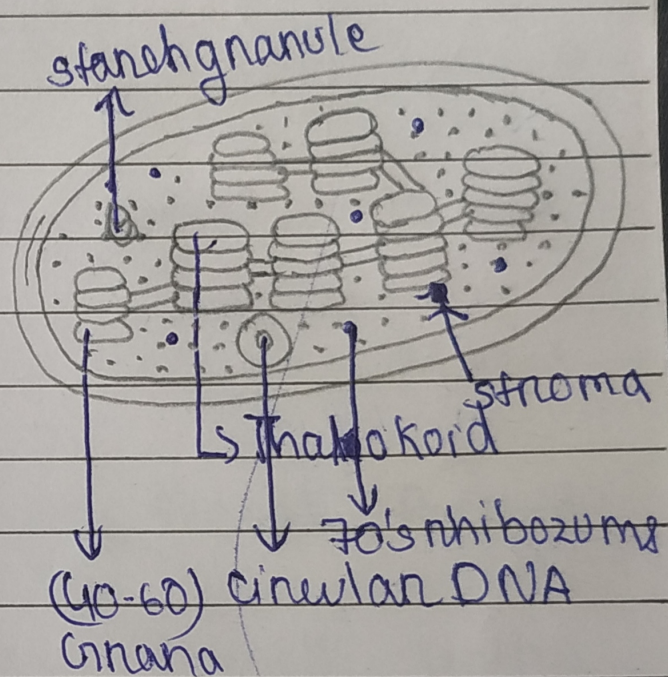 starch granule
stroma
Thalokoid
70's rhibozums
(40-60) circular DNA
Grana